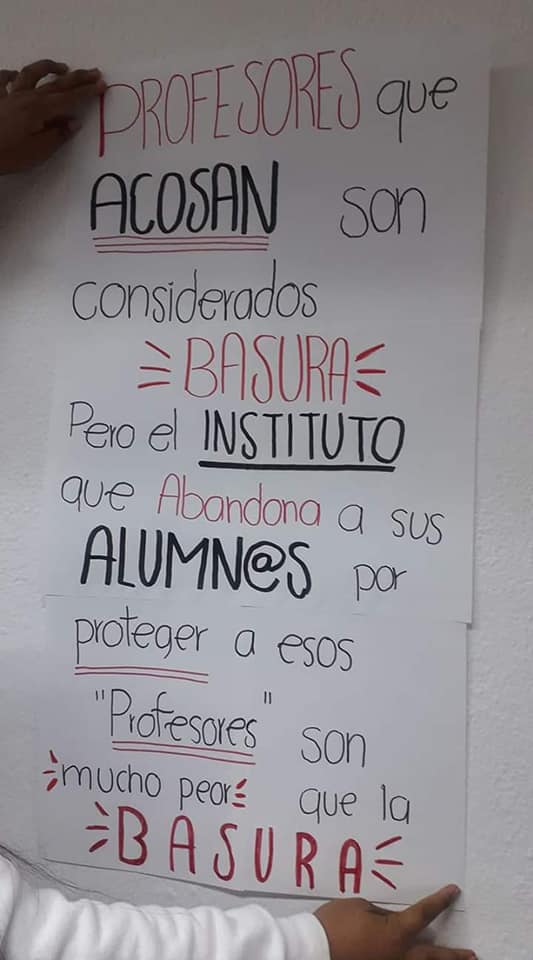 PROFESORES que
ACOSAN son
considerados
BASURA
Pero el INSTITUTO
que Abandona a sus
ALUMN@S por
proteger a esos
"Profesores" son
mucho peor que la
BASURA